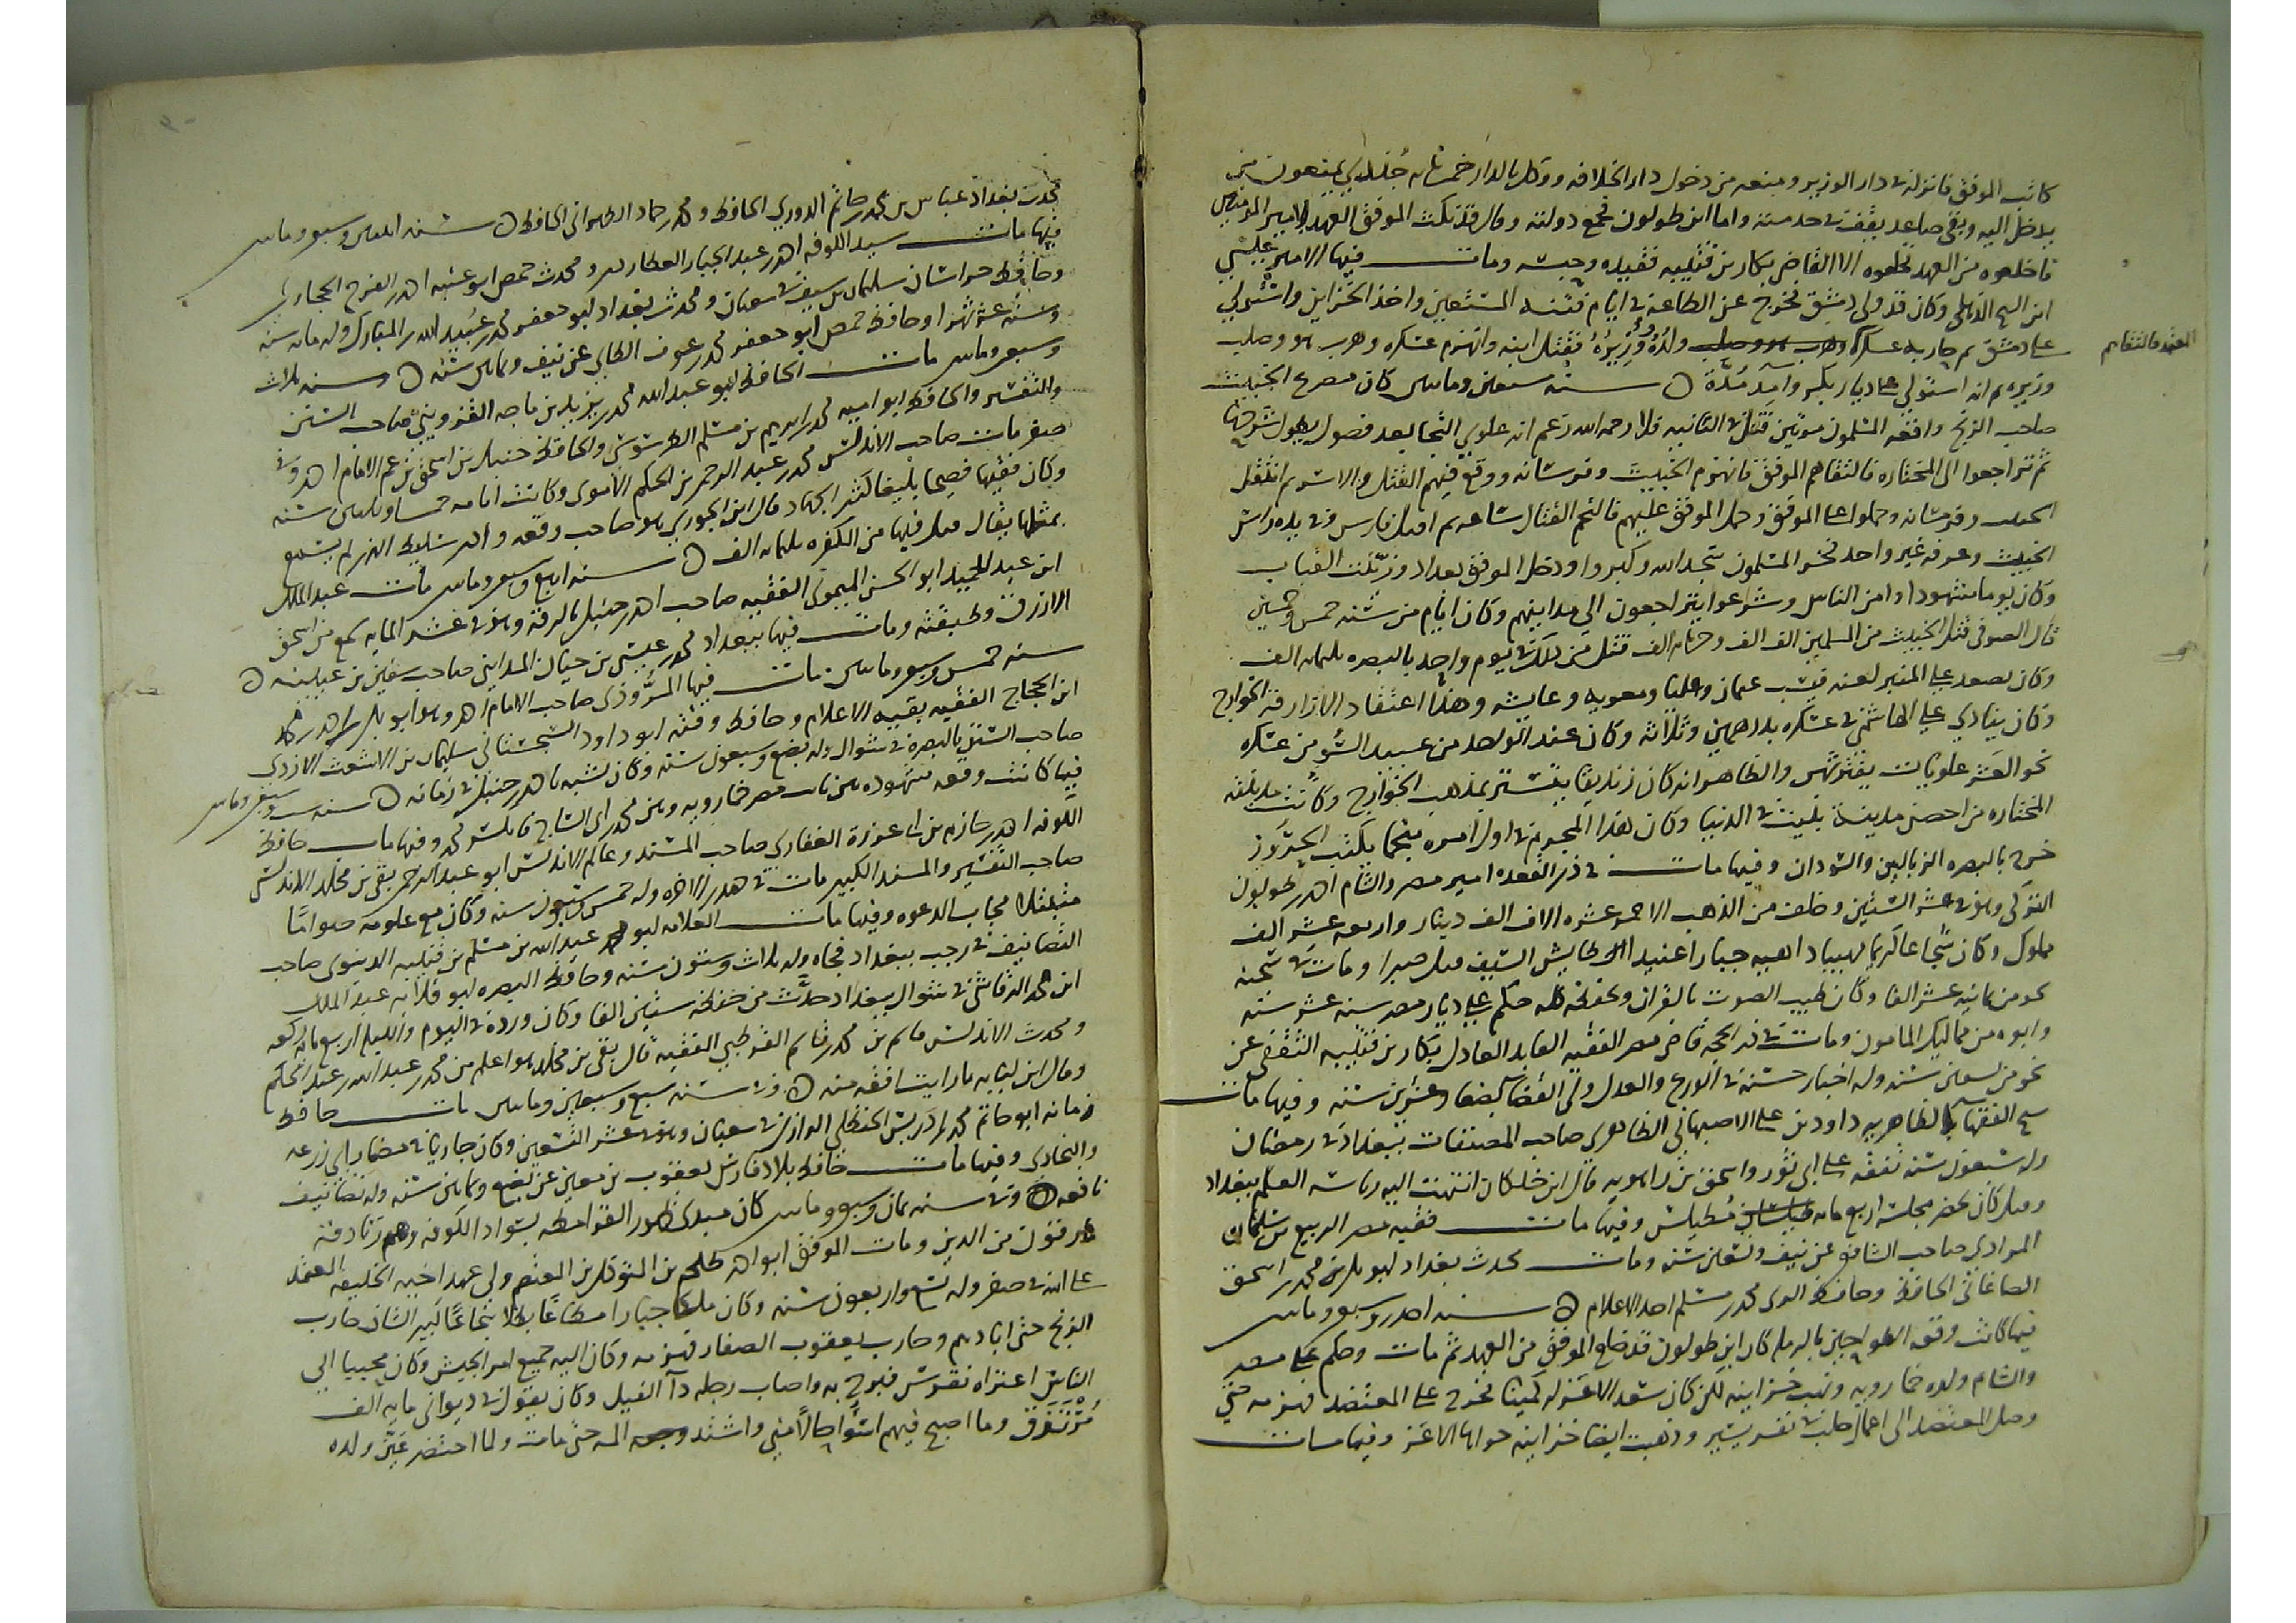 كاتب الموفق فانزله في دار الوزير ومنعه من دخول دار الخلافه ووكل بالدار خمس مايه جندي يمنعون من
يدخل اليه وبقي صاعد يقف في خدمته واما ابن طولون فجمع دولته وقال قد نكث الموفق العهد لامير المومنين
فاخلعوه من العهد فخلعوه الا القاضي بكار بن قتيبه فقيده وحبسه ومات فيها الامير عيسي
ابن الشيخ الذهلي وكان قد ولي دمشق فخرج عن الطاعة في ايام فتنة المستعين واخذ الخزاين واستولي
علي دمشق ثم حاربه عسكر ولده ووزيره فقتل ابنه وانهزم عسكره وهرب هو وصلب
المعتمد فالتقاهم
وزيره ثم انه استولي علي ديار بكر وآمد مدة سنة سبعين ومايتين كان مصرع الخبيث
صاحب الزنج واقعه المسلمون مرتين قتل في الثانيه فلا رحمه الله زعم انه علوي التجا بعد فصول يطول شرحها
ثم تراجعوا الي المختاره فالتقاهم الموفق فانهزم الخبيث وفرسانه ووقع فيهم القتل والاسر ثم اثقل
الخبيث وفرسانه وحملوا علي الموفق وحمل الموفق عليهم فالتحم القتال ساعه ثم اقبل فارس وفي يده راس
الخبيث وعرفه غير واحد فخر المسلمون سجدا لله وكبروا ودخل الموفق بغداد وزينت القباب
وكان يوما مشهودا وامن الناس وشرعوا يتراجعون الي مداينهم وكان ايام من سنه خمس وخمسين
قال الصوفي قتل الخبيث من المسلمين الف الف وخمس مايه الف قتل من تلك في يوم واحد بالبصره ثلثمايه الف
وكان يصعد علي المنبر لعنه فيسب عثمان وعليا ومعويه وعايشه وهذا اعتقاد الازارقه الخوارج
وكان ينادي علي الهاشمي في عسكره بدرهمين وثلاثه وكان عند الواحد من عبيد السوء من عسكره
نحو العشر علويات يفترشهن والظاهر انه كان زنديقا يتستر بمذهب الخوارج وكانت مدينته
المختاره من احصن مدينة بنيت في الدنيا وكان هذا المجرم في اول امره منجما يكتب الحروز
خرج بالبصره الزبالين والسودان وفيها مات في ذي القعده امير مصر والشام احمد بن طولون
التركي وهو في عشر الستين وخلف من الذهب الاحمر عشره الاف الف دينار واربعه عشر الف
مملوك وكان شجاعا كريما مهيبا داهيه جبارا عنيدا طايش السيف قيل صبرا ومات في سجنه
نحو من ثمانيه عشر الفا وكان طيب الصوت بالقران وبحفظه كله حكم علي ديار مصر سته عشر سنه
وابوه من مماليك المامون ومات في ذي الحجه قاضي مصر الفقيه العابد العادل بكار بن قتيبه الثقفي عن
نحو من تسعين سنه وله اخبار حسنة في الورع والعدل ولي القضا بضعا وعشرين سنه وفيها مات
شيخ الفقها الظاهريه داود بن علي الاصبهاني الظاهري صاحب المصنفات ببغداد في رمضان
وله سبعون سنه تفقه علي ابي ثور واسحق بن راهويه قال ابن خلكان انتهت اليه رياسه العلم ببغداد
وقيل كان يحضر مجلسه اربع مايه طيلسان وفيها مات فقيه مصر الربيع بن سليمان
المرادي صاحب الشافعي عن نيف وتسعين سنه ومات محدث بغداد ابو بكر محمد بن اسحق
الصاغاني الحافظ وحافظ الري محمد بن مسلم احد الاعلام سنه احدي وسبعين ومايتين
فيها كانت وقعه الطواحين بالرمله كان ابن طولون قد خلع الموفق من العهد ثم مات وحكم علي مصر
والشام ولده خمارويه ونهب خزاينه لكن كان سعد الاعسر له كمينا فخرج علي المعتضد فهزمه حتي
وصل المعتضد الي اعمال حلب في نفر يسير وذهبت ايضا خزاينه حواها الاعسر وفيها مات
محدث بغداد عباس بن محمد بن حاتم الدوري الحافظ ومحمد بن حماد الطهراني الحافظ سنه اثنتين وسبعين ومايتين
فيها مات سيد الكوفه احمد بن عبد الجبار العطاردي ومحدث حمص ابو عتبه احمد بن الفرج الحجازي
وحافظ حراسان سليمان بن سيف في شعبان ومحدث بغداد ابو جعفر محمد بن عبيد الله بن المبارك وله مايه سنه
وسته عشر شهرا وحافظ حمص ابو جعفر محمد بن عوف الطايي عن نيف وثمانين سنه وسنه ثلاث
وسبعين ومايتين مات الحافظ ابو عبد الله محمد بن يزيد بن ماجه القزويني صاحب السنن
والتفسير والحافظ ابو اميه محمد بن ابرهيم بن مسلم الطرسوسي والحافظ حنبل بن اسحق بن عم الامام احمد وفي
صفر مات صاحب الاندلس محمد بن عبد الرحمن بن الحكم الاموي وكانت ايامه خمسا وثلاثين سنه
وكان فقيها فصيحا بليغا كثير الجهاد قال ابن الجوزي هو صاحب وقعه وادي سليط التي لم يسمع
بمثلها يقال قتل فيها من الكفره ثلثمايه الف سنه اربع وسبعين ومايتين مات عبد الملك
ابن عبد الحميد ابو الحسن الميموني الفقيه صاحب احمد بن حنبل بالرقه وهو في عشر المايه سمع من اسحق
الازرق وطبقته ومات فيها ببغداد محمد بن عيسي بن حيان المدايني صاحب سفين بن عيينه
سنه خمس وسبعين ومايتين مات فيها المروذي صاحب الامام احمد وهو ابو بكر احمد بن محمد
ابن الحجاج الفقيه بقيه الاعلام وحافظ وقته ابو داود السجستاني سليمان بن الاشعث الازدي
صاحب السنن بالبصره في شوال وله بضع وسبعون سنه وكان يشبه باحمد بن حنبل في زمانه سنه ست وسبعين ومايتين
فيها كانت وقعه مشهوده بين صاحب مصر خمارويه وبين محمد بن ابي الساج فانكسر محمد وفيها مات حافظ
الكوفه احمد بن حازم بن ابي غرزة الغفاري صاحب المسند وعالم الاندلس ابو عبد الرحمن بقي بن مخلد الاندلسي
صاحب التفسير والمسند الكبير مات في جمدي الاخره وله خمس وسبعون سنه وكان مع علومه صواما
متبتلا مجاب الدعوه وفيها مات العلامه ابو محمد عبد الله بن مسلم بن قتيبه الدينوري صاحب
التصانيف في رجب ببغداد فجاه وله ثلاث وستون سنه وحافظ البصره ابو قلابه عبد الملك
ابن محمد الرقاشي في شوال ببغداد حدث من حفظه ستين الفا وكان ورده في اليوم والليله اربع مايه ركعه
ومحدث الاندلس قاسم بن محمد بن قاسم القرطبي الفقيه قال بقي بن مخلد هو اعلم من محمد بن عبد الله بن عبد الحكم
وقال ابن لبابه ما رايت افقه منه وفي سنه سبع وسبعين ومايتين مات حافظ
زمانه ابو حاتم محمد بن ادريس الحنظلي الرازي في شعبان وهو في عشر التسعين وكان جاريا في مضمار ابي زرعه
والبخاري وفيها مات حافظ بلاد فارس يعقوب بن سفين عن بضع وثمانين سنه وله تصانيف
نافعه وفي سنه ثمان وسبعين ومايتين كان مبدي ظهور القرامطه بسواد الكوفه وهم زنادقة
مرقون من الدين ومات الموفق ابو احمد طلحه بن المتوكل بن المعتصم ولي عهد اخيه الخليفه المعتمد
علي الله في صفر وله تسع واربعون سنه وكان ملكا جبارا مطاعا بطلا شجاعا كبير الشان حارب
الزنج حتي ابادهم وحارب يعقوب الصفار فهزمه وكان اليه جميع امر الجيش وكان محببا الي
الناس اعتراه نقرس فبرح به واصاب رجله دآ الفيل وكان يقول في ديواني مايه الف
مرتزق وما اصبح فيهم اسوا حالا مني واشتد وجعه الم حتي مات ولما احتضر عين ولده